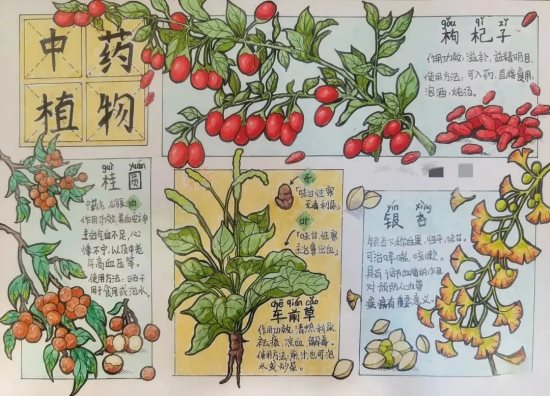 中药
植物
gǒu qǐ zǐ
枸杞子
作用功效：滋补，益精明目。
使用方法：可入药，直接食用，
泡酒，炖汤。
guì yuán
桂圆
作用功效：养血安神
主治气血不足，心
悸不宁，以及中老
年高血压等。
使用方法：日常
用于食用或泡水。
「味甘性寒
无毒利尿」
叶
「味甘，性寒
主治鼻出血」
chē qián cǎo
车前草
作用功效：清热利尿
祛痰，凉血，解毒。
使用方法：煎汁也可泡
水或炒菜。
yín xìng
银杏
银杏又称白果，性平，味甘。
可治哮喘，咳嗽。
具有调节血脂的作用
对预防心血管
疾病有重要意义。